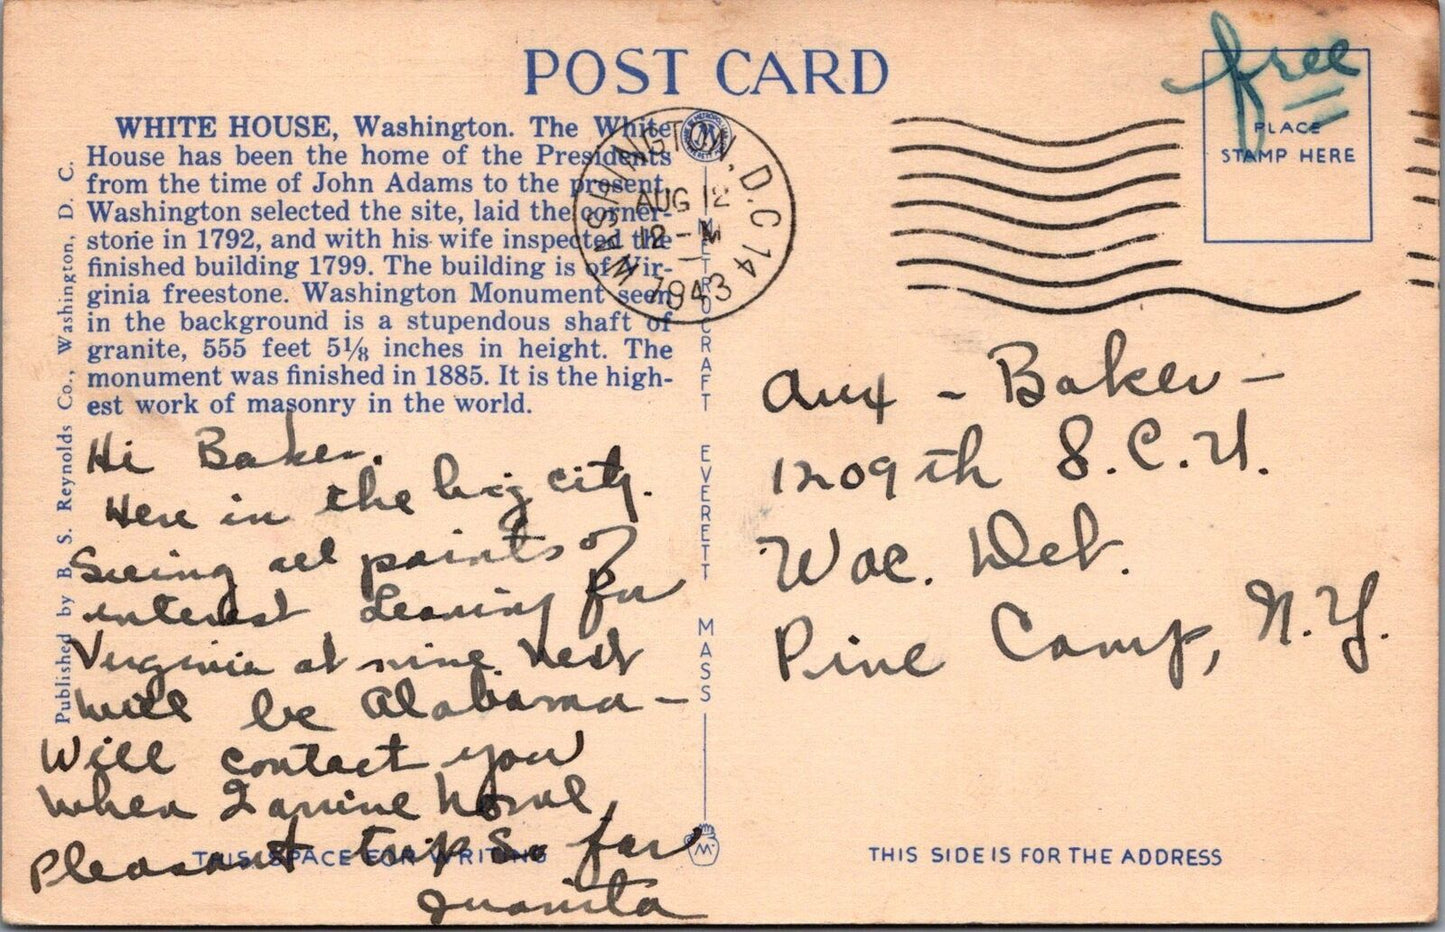 POST CARD
free
PLACE
STAMP HERE
WHITE HOUSE, Washington. The White
House has been the home of the Presidents
from the time of John Adams to the present.
Washington selected the site, laid the corner-
stone in 1792, and with his wife inspected the
finished building 1799. The building is of Vir-
ginia freestone. Washington Monument seen
in the background is a stupendous shaft of
granite, 555 feet 5⅛ inches in height. The
monument was finished in 1885. It is the high-
est work of masonry in the world.
WASHINGTON, D.C. 14
AUG 12
12 - M
1943
Published by B. S. Reynolds Co., Washington, D. C.
METROCRAFT EVERETT MASS
Hi Baker.
Here in the big city.
Seeing all points of
interest Leaving for
Virginia at nine. Next
will be Alabama -
Will contact you
when I arrive home,
Pleasant trip so far
Juanita
Aux - Baker -
1209th S.C.U.
Wac. Det.
Pine Camp, N.Y.
THIS SPACE FOR WRITING
M
THIS SIDE IS FOR THE ADDRESS